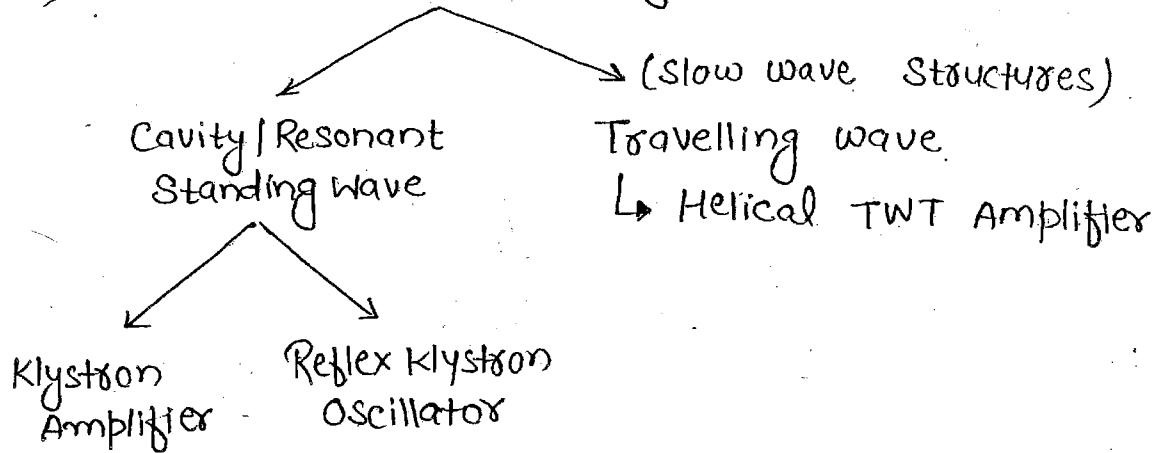 (Slow wave Structures)
Cavity/Resonant
Standing Wave
Travelling wave
↳ Helical TWT Amplifier
Klystron
Amplifier
Reflex Klystron
Oscillator